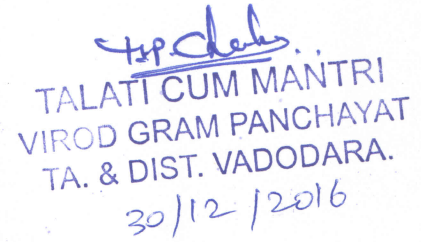 TALATI CUM MANTRI
VIROD GRAM PANCHAYAT
TA. & DIST. VADODARA.
30/12/2016